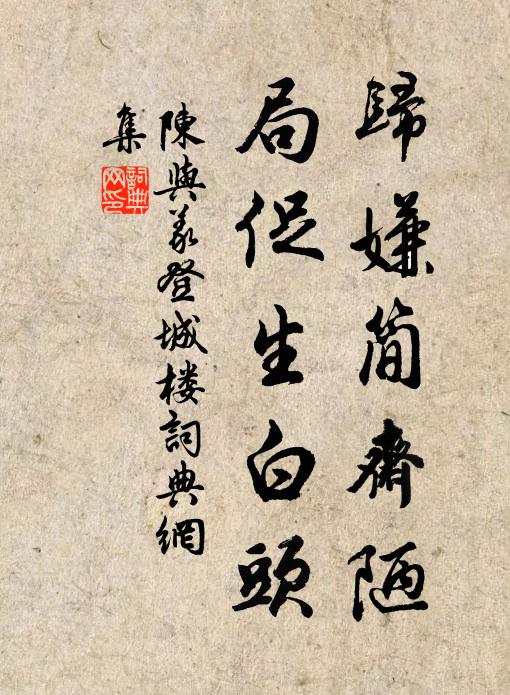 歸嫌简齋陋
局促生白頭
陳與義登城楼詞典網
集
詞典
网印